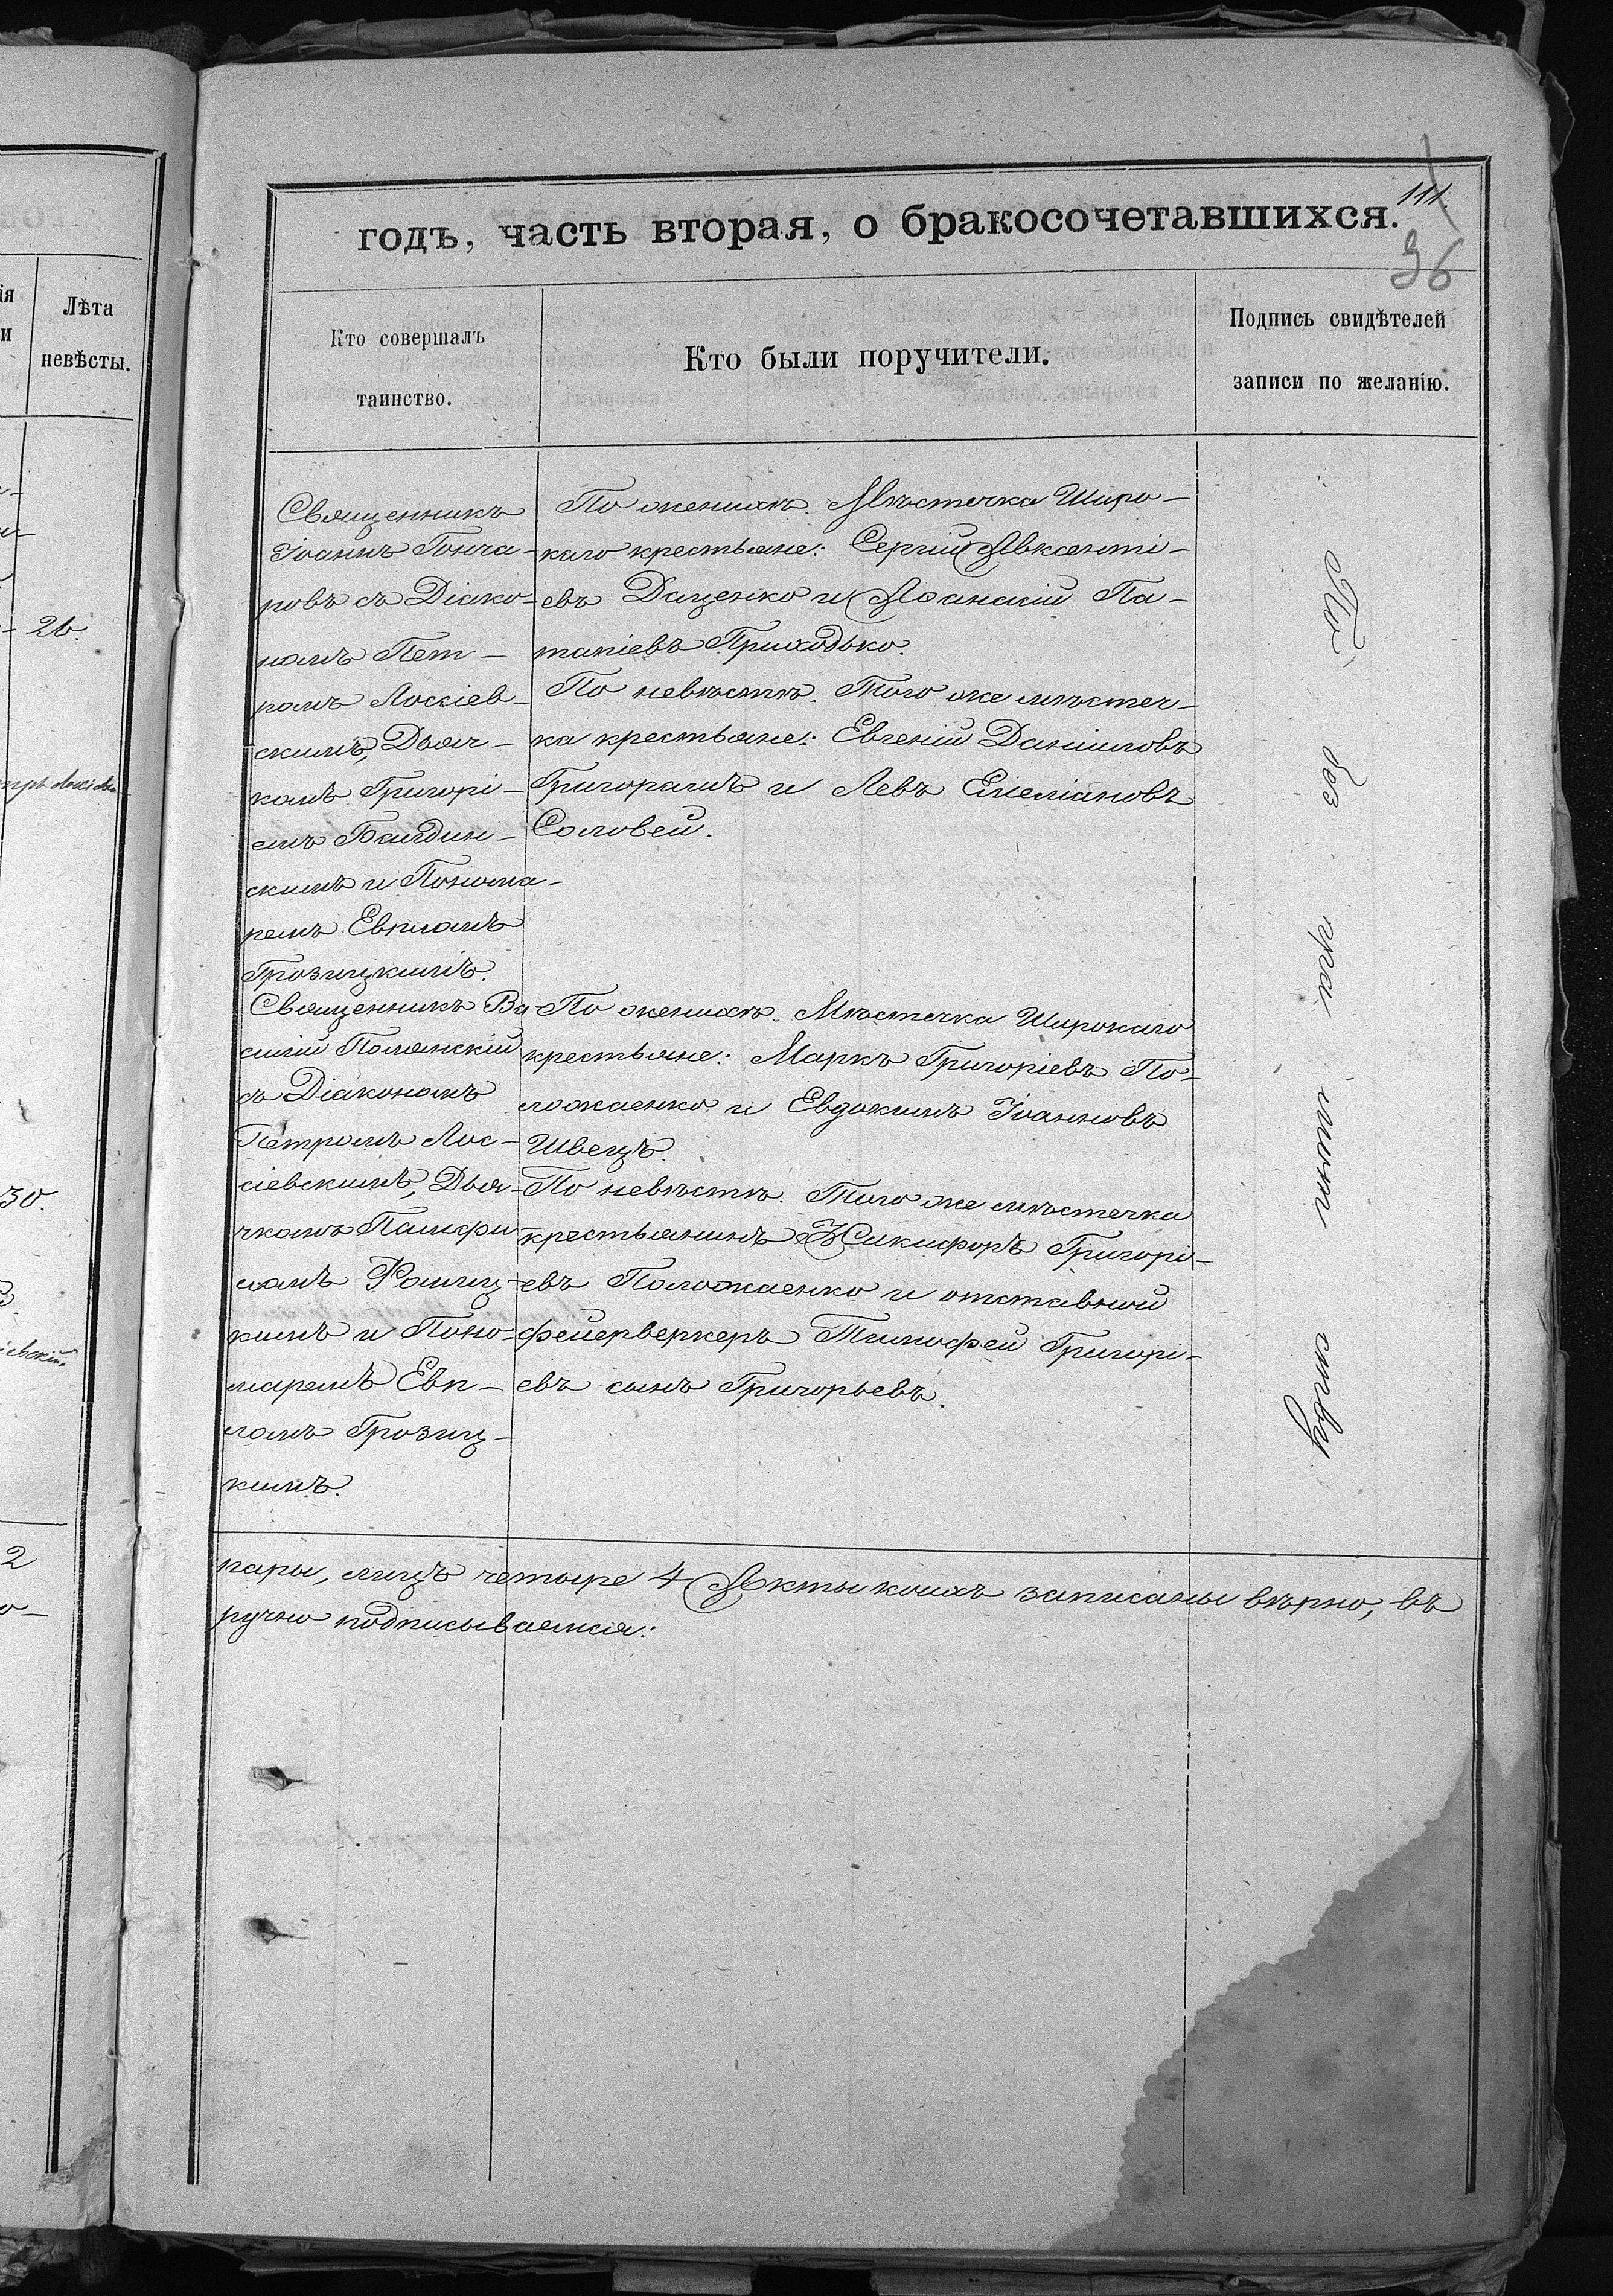 111.
96
годъ, часть вторая, о бракосочетавшихся.
Лѣта
невѣсты.
Кто совершалъ
таинство.
Кто были поручители.
Подпись свидѣтелей
записи по желанію.
26.
30.
2
Священникъ
Іоаннъ Гонча-
ровъ съ Діако-
номъ Пет-
ромъ Лосіев-
скимъ, Дьяч-
комъ Григорі-
емъ
скимъ и Понома-
ремъ Евпломъ
Грозицкимъ.
По женихѣ. Мѣстечка Широ-
каго крестьяне: Сергій Авксенті-
евъ Даценко и Аѳанасій Па-
тапіевъ Приходько.
По невѣстѣ. Того же мѣстеч-
ка крестьяне: Евгеній Даніиловъ
Григорашъ и Левъ Емеліановъ
Соловей.
Священникъ Ва-
силій Полянскій
съ Діакономъ
Петромъ Лос-
сіевскимъ, Дья-
чкомъ Памфи-
ломъ
кимъ и Поно-
маремъ Евп-
ломъ Грозиц-
кимъ.
По женихѣ. Мѣстечка Широкаго
крестьяне: Маркъ Григоріевъ По-
ложаенко и Евдокимъ Іоанновъ
Швецъ.
По невѣстѣ. Того же мѣстечка
крестьянинъ Никифоръ Григорі-
евъ Положаенко и отставной
фейерверкеръ Тимофей Григорі-
евъ сынъ Григорьевъ.
пары, лицъ четыре 4 Акты коихъ записаны вѣрно, въ
ручно подписываемся: